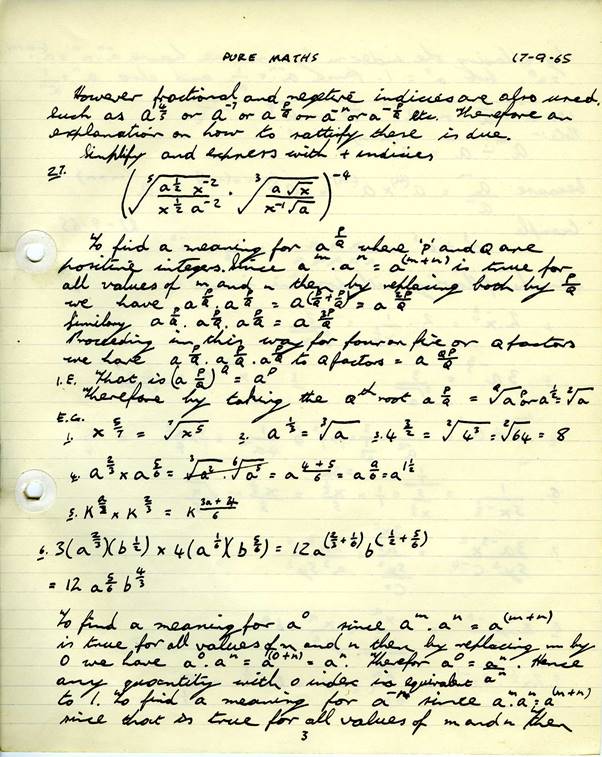 PURE MATHS 17-9-65
However fractional and negative indicies are also used,
such as a^4/5 or a^-7 or a^p/q or a^-n or a^-p/q etc. Therefore an
explanation on how to rattify these is due.
Simplify and express with + indicies
27. (⁵√(a^1/2 x^-2 / x^1/2 a^-2) . ³√(a√x / x^-1√a))^-4
To find a meaning for a^p/q where 'p' and q are
positive integers. Since a^m . a^n = a^(m+n) is true for
all values of m and n then by replacing both by p/q
we have a^p/q . a^p/q = a^(p/q + p/q) = a^2p/q
Similary a^p/q . a^p/q . a^p/q = a^3p/q
Proceeding in this way for four or five or q factors
we have a^p/q . a^p/q . a^p/q to q factors = a^qp/q
I.E. That is (a^p/q)^q = a^p
Therefore by taking the qth root a^p/q = ^q√a^p or a^1/2 = ²√a
E.G.
1. x^5/7 = ⁷√x⁵ 2. a^1/3 = ³√a 3. 4^3/2 = ²√4³ = ²√64 = 8
4. a^2/3 × a^5/6 = ³√a² . ⁶√a⁵ = a^(4+5)/6 = a^9/6 = a^1 1/2
5. K^a/2 × K^2/3 = K^(3a+4)/6
6. 3(a^2/3)(b^1/2) × 4(a^1/6)(b^5/6) = 12a^(2/3+1/6) b^(1/2+5/6)
= 12 a^5/6 b^4/3
To find a meaning for a⁰ since a^m . a^n = a^(m+n)
is true for all values of m and n then by replacing m by
0 we have a⁰. a^n = a^(0+n) = a^n. Therefor a⁰ = a^n/a^n. Hence
any quantity with 0 index is equivalent
to 1. To find a meaning for a^-n since a^m . a^n = a^(m+n)
since that is true for all values of m and n then
3